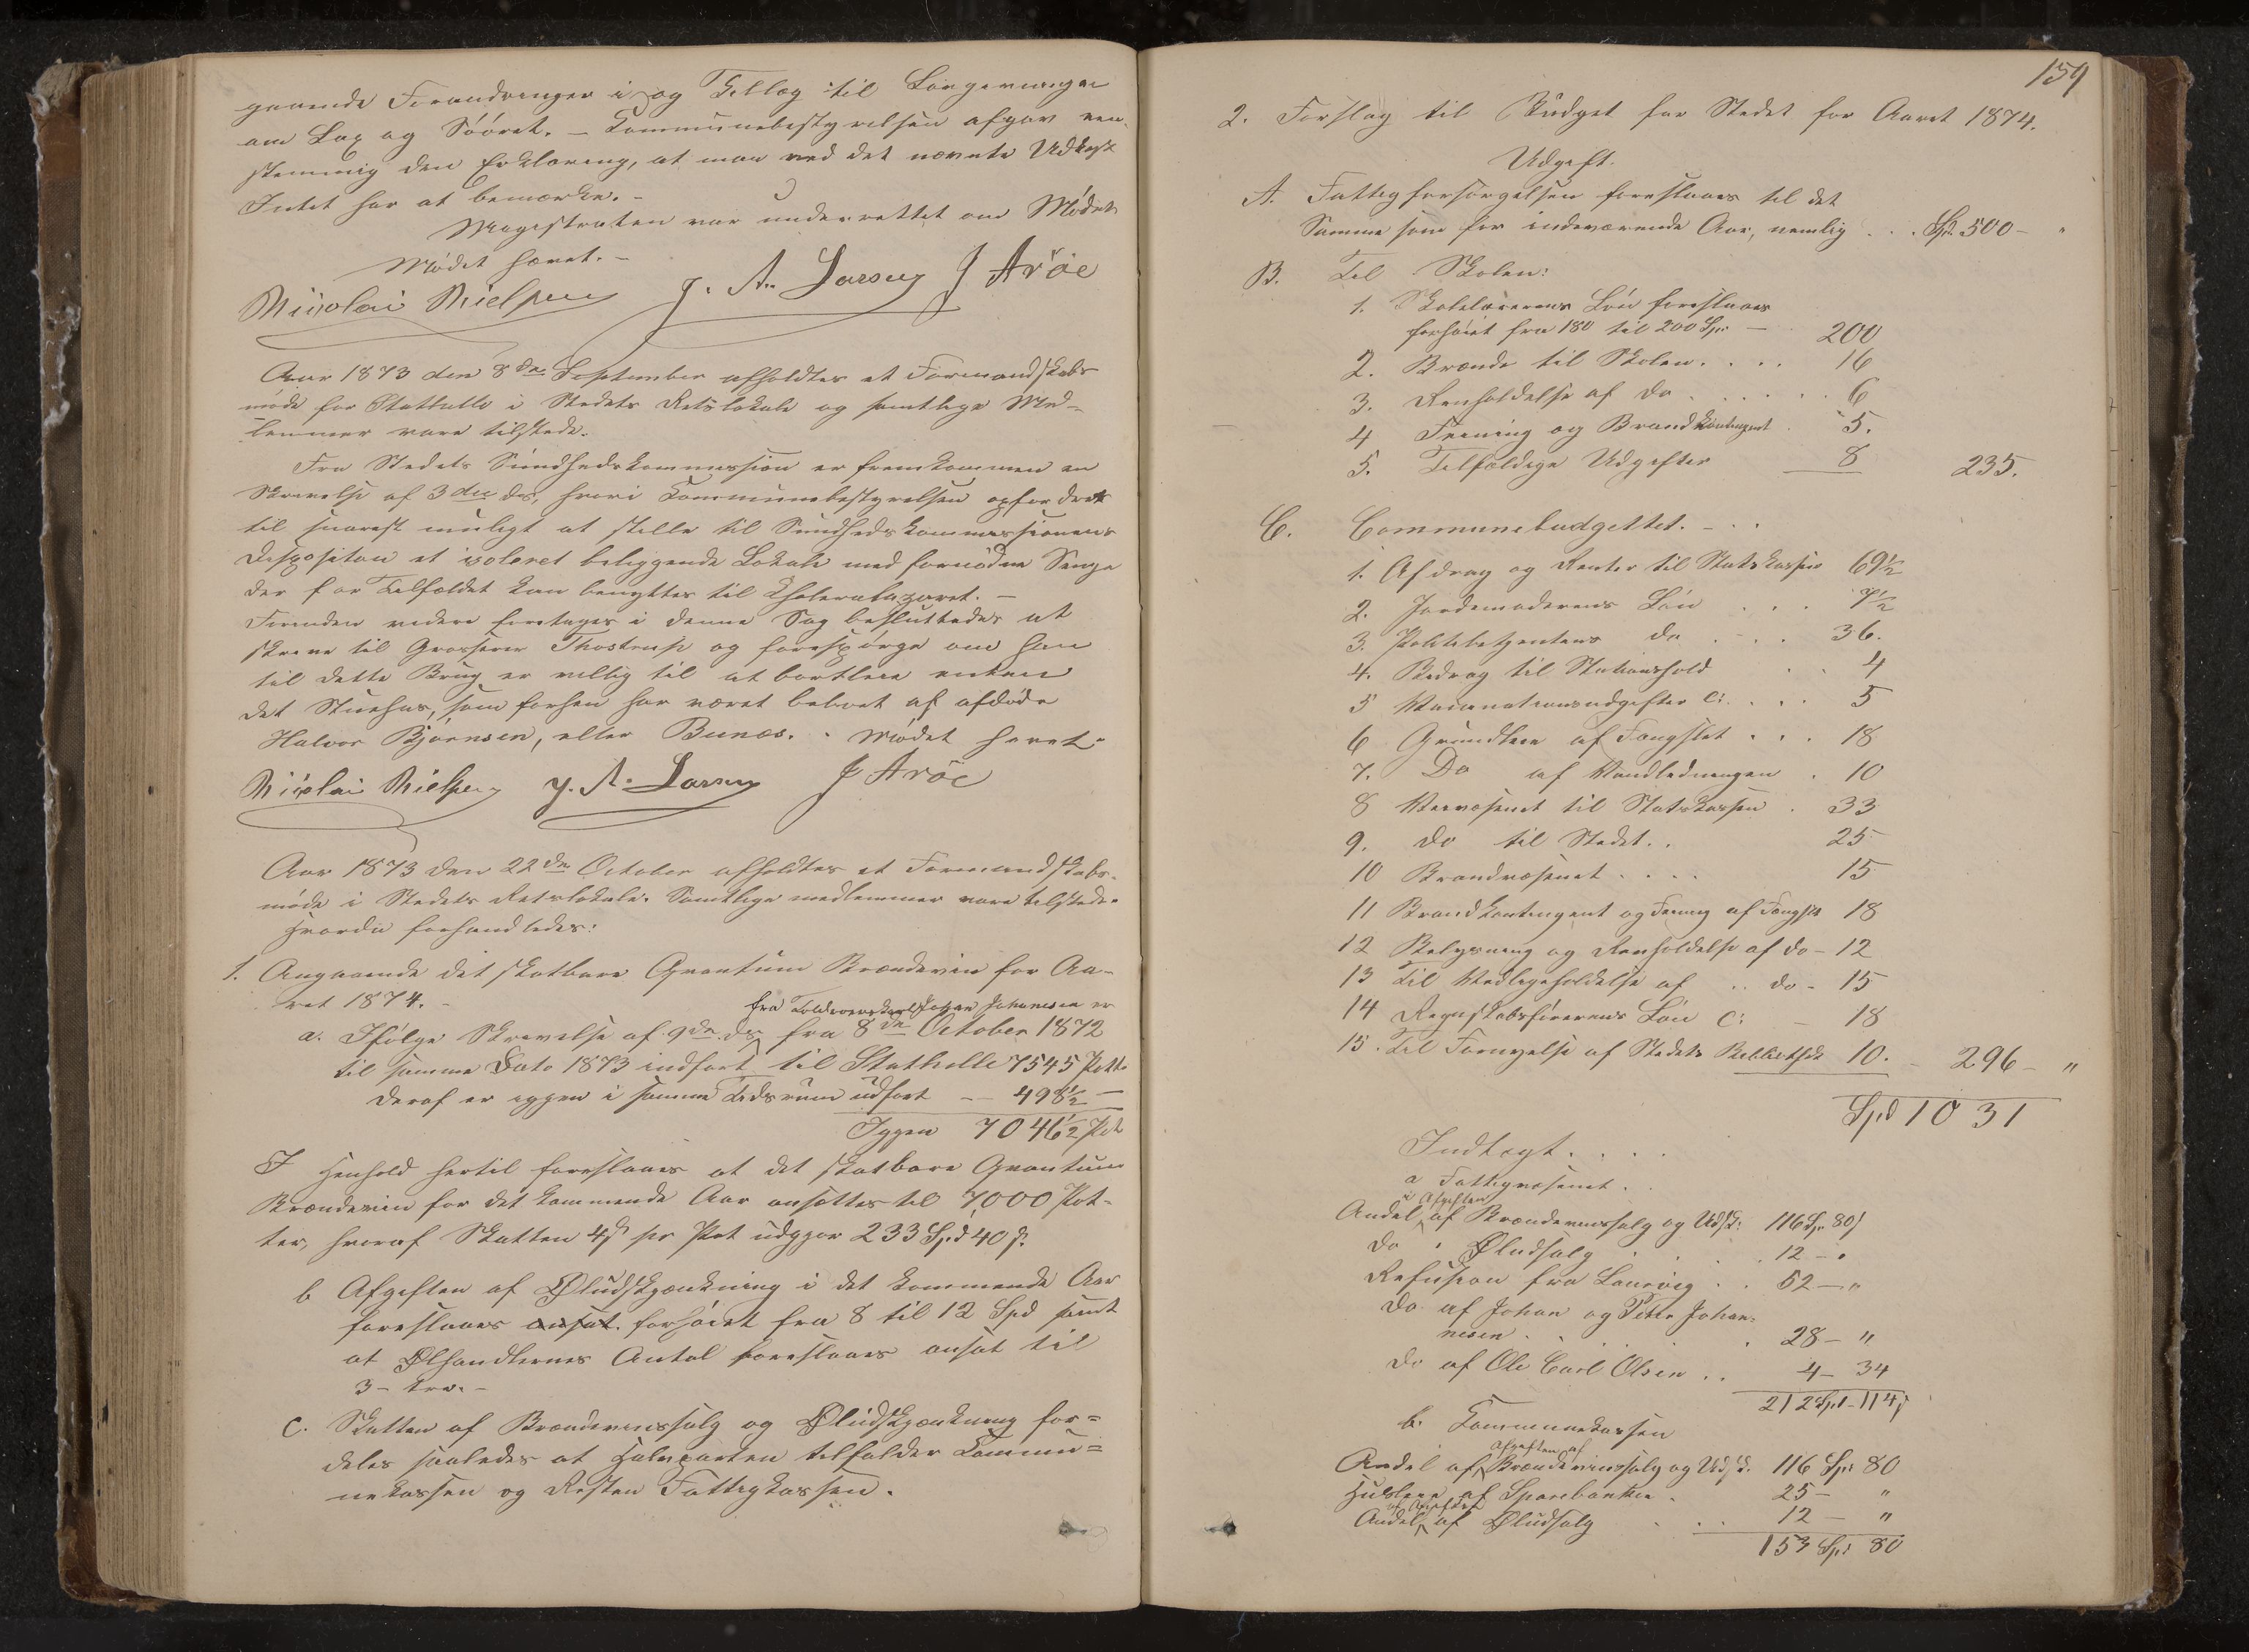 gaaende Forandringer i og Tillæg til Lovgivningen
om Lax og Søöret. – Kommunebestyrelsen afgav een-
stemmig den Erklæring, at man ved det nævnte Udkast
Intet har at bemærke. –
Magistraten var underrettet om Mødet.
Mødet hævet. –
Nicolai Nielsen J. A. Larsen J Aröe
Aar 1873 den 8de September afholdtes et Formandskabs
møde for Stathelle i Stedets Retslokale og samtlige Med-
lemmer vare tilstede.
Fra Stedets Sundhedskommission er fremkommen en
Skrivelse af 3die ds, hvori Kommunebestyrelsen opfordres
til snarest muligt at stille til Sundhedskommissionens
Disposition et isoleret beliggende Lokale med fornødne Senge
der for Tilfældet kan benyttes til Choleralazaret. –
Forinden videre foretages i denne Sag besluttedes at
skrive til Grosserer Thostrup og forespørge om han
til dette Brug er villig til at bortleie enten
det Stuehus, som forhen har været beboet af afdøde
Halvor Bjørnsen, eller Bunæs. - Mødet hævet.
Nicolai Nielsen J. A. Larsen J Aröe
Aar 1873 den 22de October afholdtes et Formandskabs-
møde i Stedets Retslokale. Samtlige medlemmer vare tilstede.
Hvorda forhandledes:
1. Angaaende det skatbare Qvantum Brændeviin for Aa-
ret 1874. –
fra Johan Johannesen er
a. Ifølge Skrivelse af 9de ds fra 8de October 1872
til samme Dato 1873 indført til Stathelle 7545 Potter
deraf er igjen i samme Tidsrum udført – 498½ –
Igjen 7046½ Pot
I Henhold hertil foreslaaes at det skatbare Qvantum
Brændeviin for det kommende Aar ansættes til 7000 Pot-
ter, hvoraf Skatten 4ß pr Pot udgjør 233 Spd 40 ß.
b Afgiften af Øludskjænkning i det kommende Aar
foreslaaes ansat. forhøiet fra 8 til 12 Spd samt
at Ølhandlernes Antal foreslaaes ansat til
3 – tre. –
c. Skatten af Brændeviinssalg og Øludskjænkning for=
deles saaledes at Halvparten tilfalder Kommu=
nekassen og Resten Fattigkassen.
159
2. Forslag til Budget for Stedet for Aaret 1874.
Udgift.
A. Fattigforsørgelsen foreslaaes til det
Samme som for indeværende Aar, nemlig . . . Spd. 500 – "
B. Til Skolen:
1. Skolelærerens Løn foreslaaes
forhøiet fra 180 til 200 Spd. – 200
2. Brænde til Skolen. . . . 16
3. Renholdelse af do . . . . . . 6
4 Feining og Brandkontingent . 5.
5. Tilfældige Udgifter 8 235.
C. Communebudgettet. – . .
1. Afdrag og Renter til Statskassen 69½
2. Jordemoderens Løn . . . 7½
3. Politibetjentens do . . . 36.
4. Bidrag til Stationshold . . 4
5 Vaccinationsudgifter c: . . . 5
6 Grundleie af Fængslet . . . 18
7. Do af Vandledningen . 10
8 Veivæsenet til Statskassen . 33
9. do til Stedet. . 25
10 Brandvæsenet . . . . 15
11 Brandkontingent og Feining af Fængslet 18
12 Belysning og Renholdelse af do – 12
13 Til Vedligeholdelse af . . do – 15
14 Regnskabsførerens Løn c: – 18
15. Til Fornyelse af Stedets Bibliothek 10. – 296 – "
Spd 1031
Indtægt. . . .
a Fattigvæsenet. .
a Afgiften
Andel af Brændeviinssalg og Udsk: 116 Sp. 80 ß
Do " Øludsalg . . . 12 – "
Refusion fra Laurvig . . 52 – "
Do af Johan og Peter Johan-
nesen . . . . 28 – "
Do af Ole Carl Olsen . . 4 – 34
212 Spd – 114 ß
b. Kommunekassen
Afgiften af
Andel af Brændeviinssalg og Udsk. 116 Spd 80
Husleie af Sparebanken . 25 – "
af Afgiften
Andel af Øludsalg . . . 12 – "
153 Spd 80